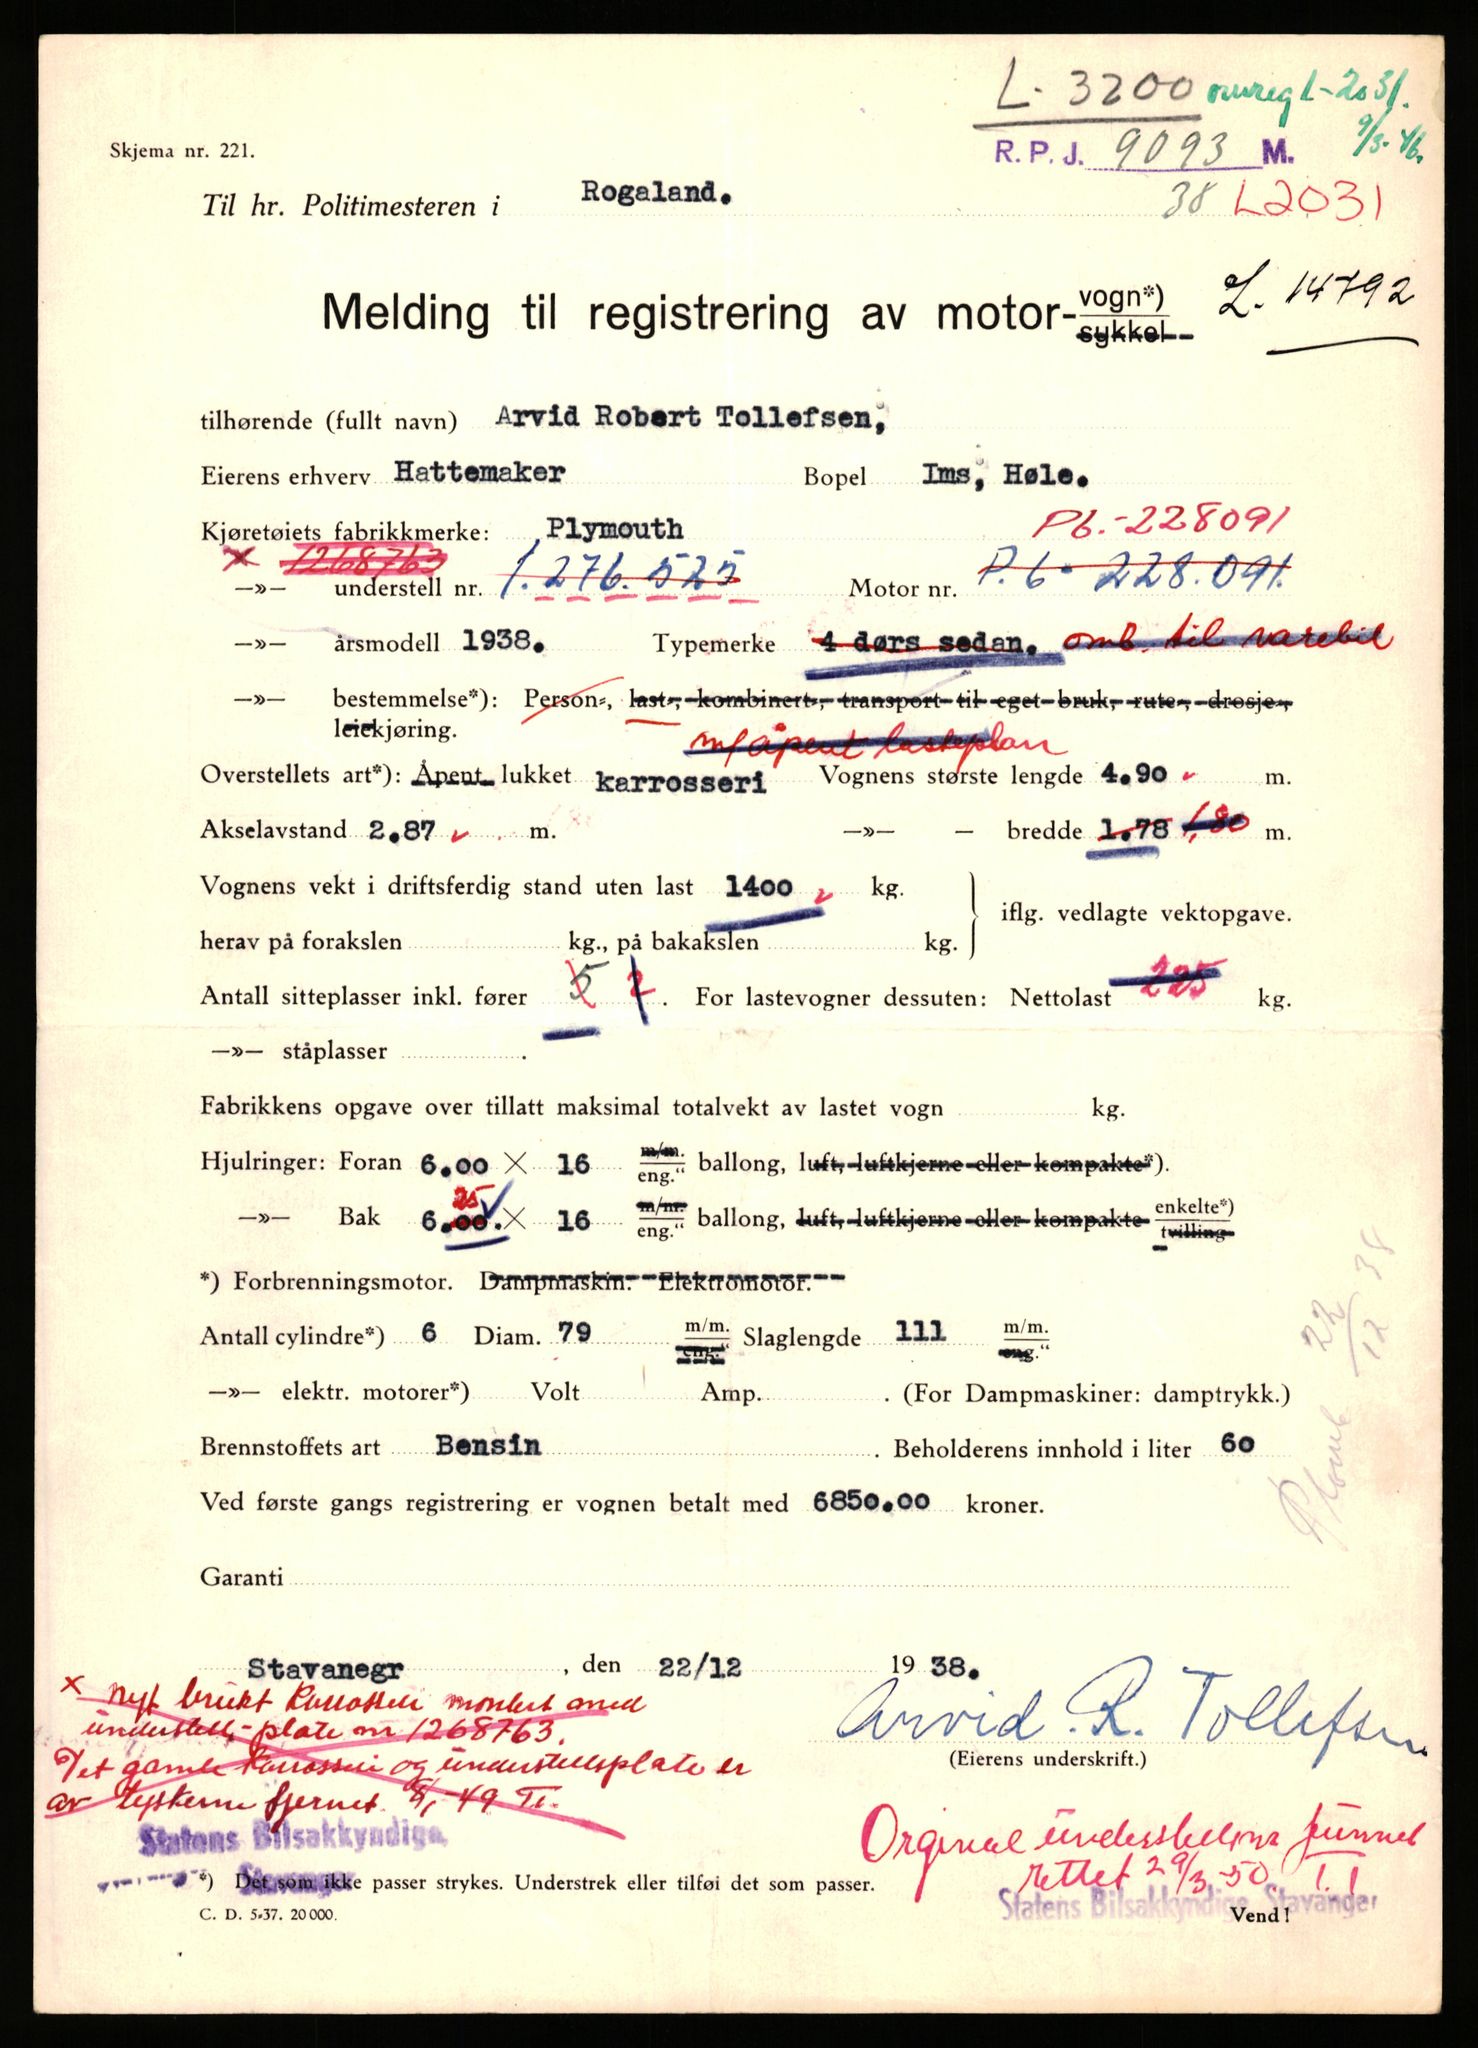 L. 3200 omreg L-2031.
9/3-46.
Skjema nr. 221.
R. P. J. 9093 M.
38 L2031
Til hr. Politimesteren i Rogaland.
L. 14792
Melding til registrering av motor-vogn*)
sykkel
tilhørende (fullt navn) Arvid Robert Tollefsen,
Eierens erhverv Hattemaker Bopel Ims, Høle.
Kjøretøiets fabrikkmerke: Plymouth P6.-228091
x 1268763
—»— understell nr. 1.276.525 Motor nr. P.6-228.091.
—»— årsmodell 1938. Typemerke 4 dørs sedan. omb. til varebil
—»— bestemmelse*): Person-, last-, kombinert-, transport til eget bruk, rute-, drosje-,
leiekjøring. m/åpent lasteplan
Overstellets art*): Åpent lukket karrosseri Vognens største lengde 4.90 m.
Akselavstand 2.87 m. —»— — bredde 1.78 1,80 m.
Vognens vekt i driftsferdig stand uten last 1400 kg.
iflg. vedlagte vektopgave.
herav på forakslen kg., på bakakslen kg.
Antall sitteplasser inkl. fører 5 2. For lastevogner dessuten: Nettolast 225 kg.
—»— ståplasser .
Fabrikkens opgave over tillatt maksimal totalvekt av lastet vogn kg.
Hjulringer: Foran 6.00 × 16 m/m. eng.“ ballong, luft, luftkjerne eller kompakte*).
25
—»— Bak 6.00. × 16 m/m. eng.“ ballong, luft, luftkjerne eller kompakte enkelte*) tvilling
*) Forbrenningsmotor. Dampmaskin. Elektromotor.
Antall cylindre*) 6 Diam. 79 m/m. eng.“ Slaglengde 111 m/m. eng.“
—»— elektr. motorer*) Volt Amp. . (For Dampmaskiner: damptrykk.)
Brennstoffets art Bensin . Beholderens innhold i liter 60
Ved første gangs registrering er vognen betalt med 6850.00 kroner.
Plomb 22/12 38
Garanti
Stavanegr, den 22/12 1938.
Arvid R. Tollefsen
(Eierens underskrift.)
x nytt brukt karosseri montert med
understell-plate nr 1268763.
Det gamle karosseri og understellsplate er
av tyskerne fjernet. 8/1-49 TI.
Statens Bilsakkyndige,
Stavanger
Orginal understellsnr funnet
rettet 29/3-50. T.I
Statens Bilsakkyndige, Stavanger
*) Det som ikke passer strykes. Understrek eller tilføi det som passer.
C. D. 5-37. 20 000.
Vend!